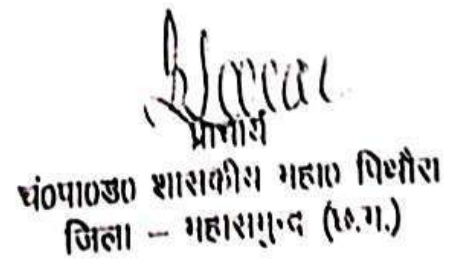 प्राचार्य
चं०पा०डा० शासकीय महा० पिथौरा
जिला – महासमुन्द (छ.ग.)